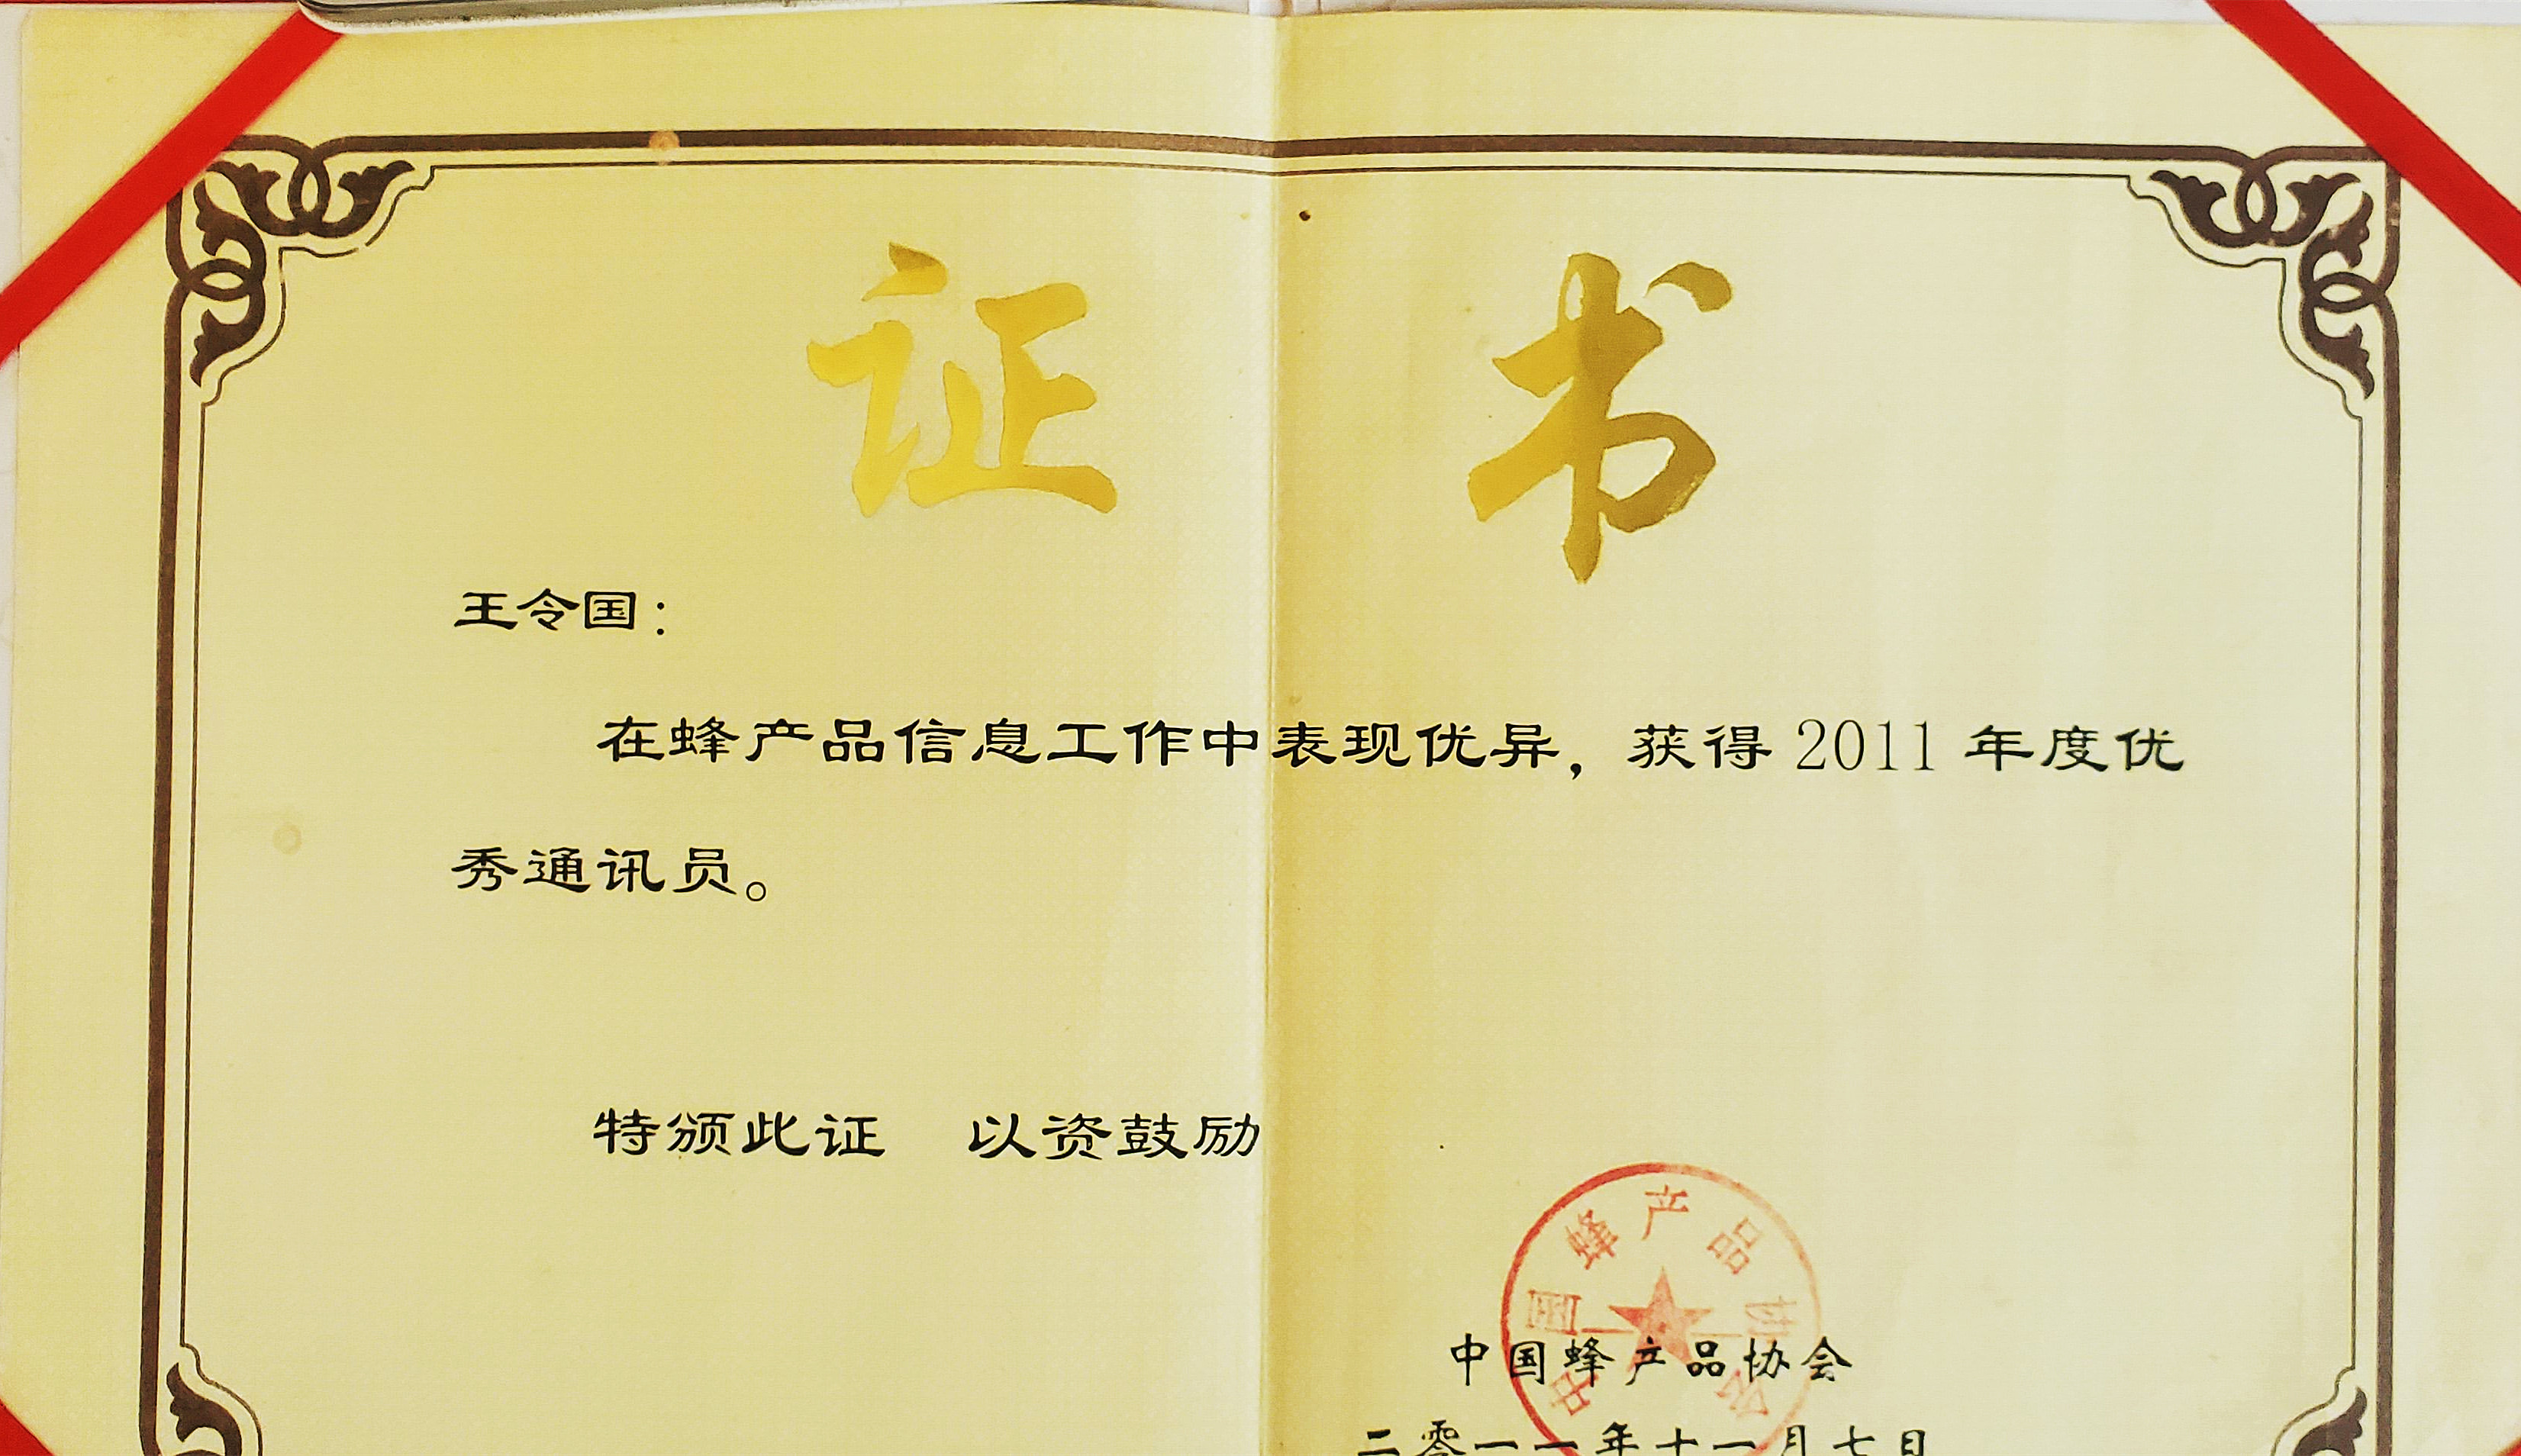 证书
王令国：
在蜂产品信息工作中表现优异，获得 2011 年度优
秀通讯员。
特颁此证 以资鼓励
中国蜂产品协会
中国蜂产品协会
二零一一年十一月七日